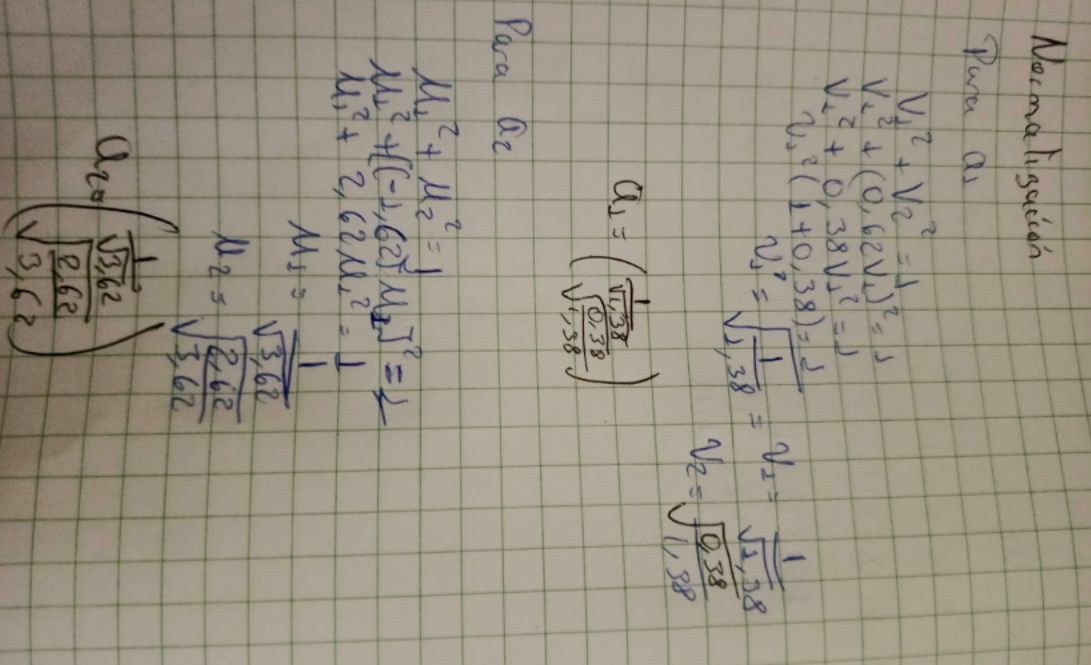 Normalización
Para a₁
V₁² + V₂² = 1
V₁² + (0,62V₁)² = 1
V₁² + 0,38V₁² = 1
V₁² (1+0,38) = 1
V₁² = √(1/1,38) = V₁ = 1/√1,38
V₂ = √(0,38/1,38)
a₁ = (1/√1,38
√(0,38/1,38))
Para a₂
μ₁² + μ₂² = 1
μ₁² + [(-1,62) μ₁]² = 1
μ₁² + 2,62 μ₁² = 1
μ₁ = 1/√3,62
μ₂ = √(2,62/3,62)
a₂ = (1/√3,62
√(2,62/3,62))